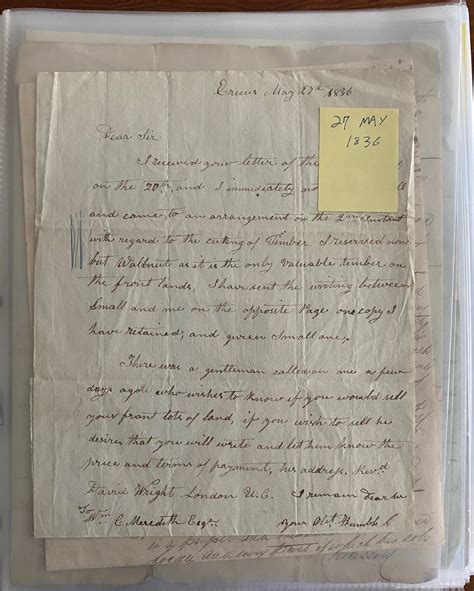 May 27th 1836
27 MAY
1836
Dear Sir.
I received your letter of the
on the 20th, and I immediately
and came to an arrangement on the 2nd Instant
with regard to the cuting of Timber. I reserved none
but Wallnut as it is the only valuable timber on
the front lands, I have sent the writing between
Small and me on the opposite Page one copy I
have retained, and given Small one,
There was a gentleman called on me a few
days ago who wishes to know if you would sell
your lots of land, if you wish to sell he
desires that you will write and let him know the
price and terms of payment, his address. Revd
David Wright London U.C. I remain Dear Sir
To Wm C. Meredith Esqr. your Obt Humble S